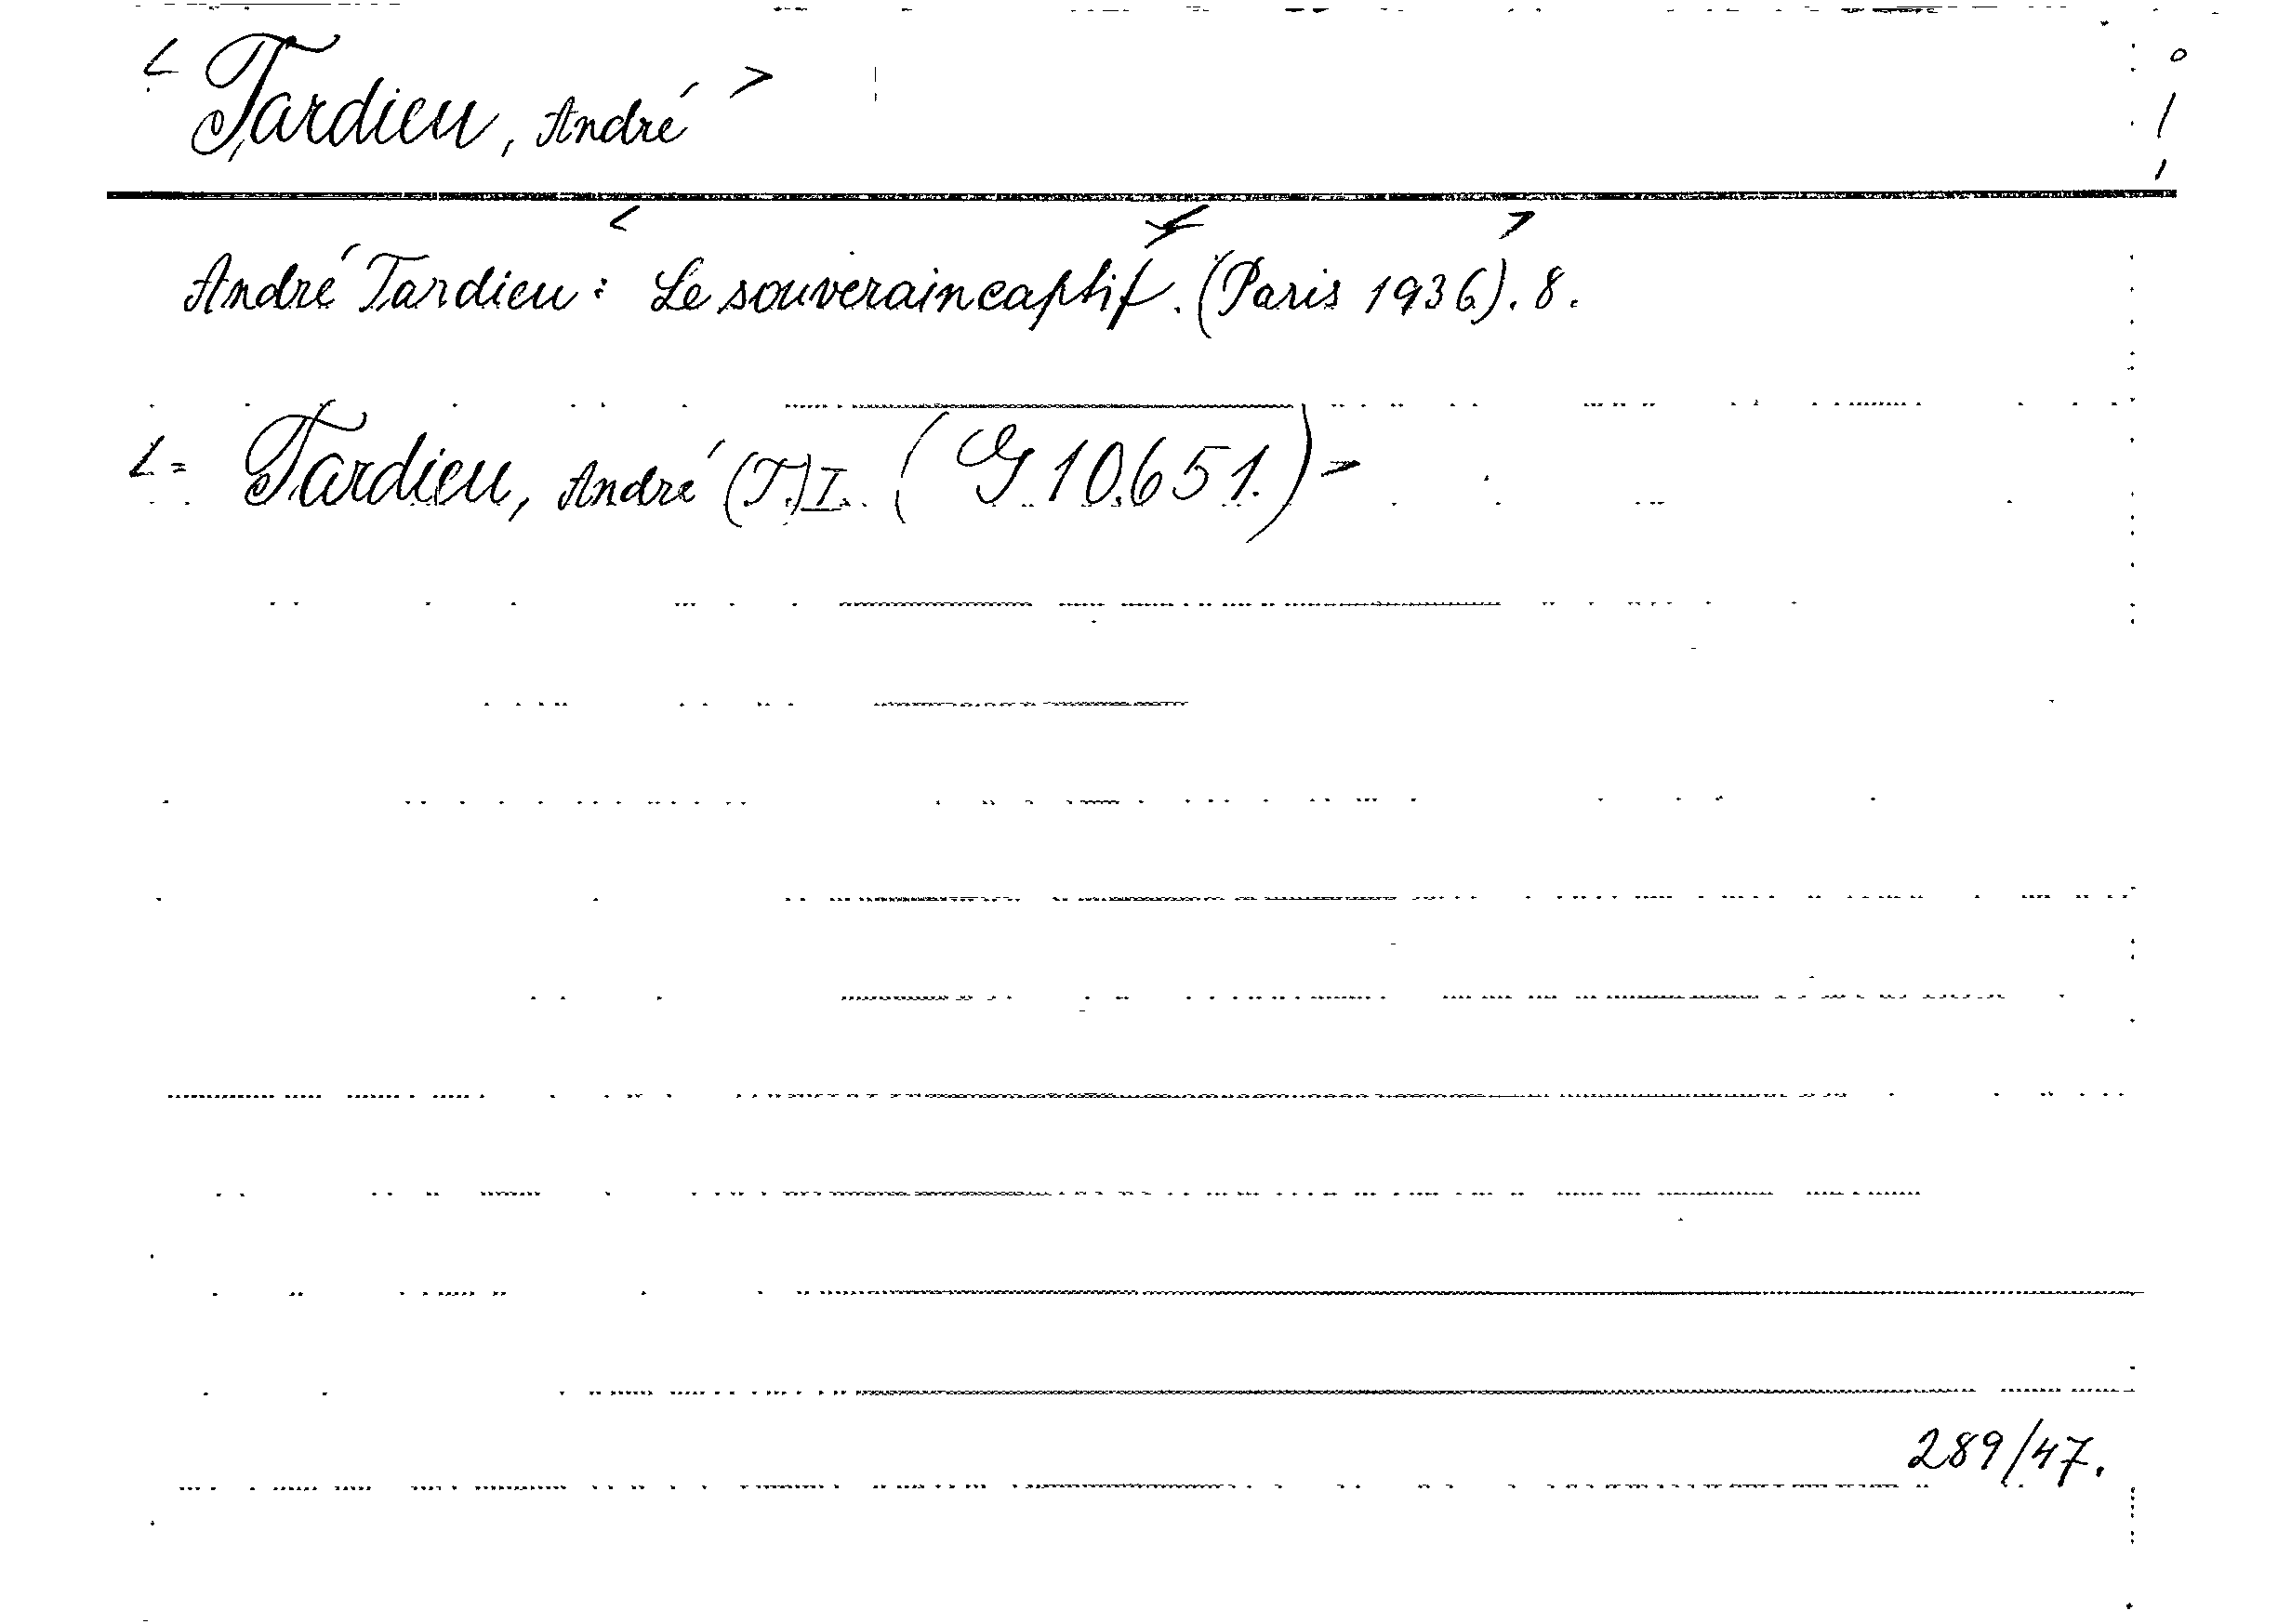 < Tardieu, André >
André Tardieu: < Le souverain captif. < (Paris 1936). > 8.
< = Tardieu, André (T.) I. (G 10.651.) >
289/47.